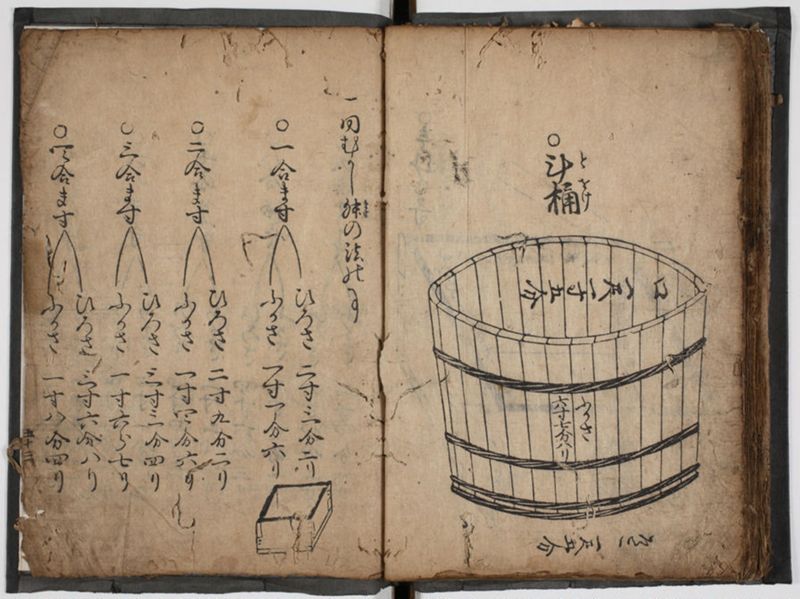 ○斗桶
とをけ
口一尺一寸五分
ふかさ
六寸七分八リ
そこ一尺五分
一同むかし舛の法の事
ます
○一合ます
ひろさ 二寸三分二リ
ふかさ 一寸一分六リ
○二合ます
ひろさ 二寸九分二リ
ふかさ 一寸四分六リ
○三合ます
ひろさ 三寸三分四リ
ふかさ 一寸六分七リ
○四合ます
ひろさ 三寸六分八リ
ふかさ 一寸八分四リ